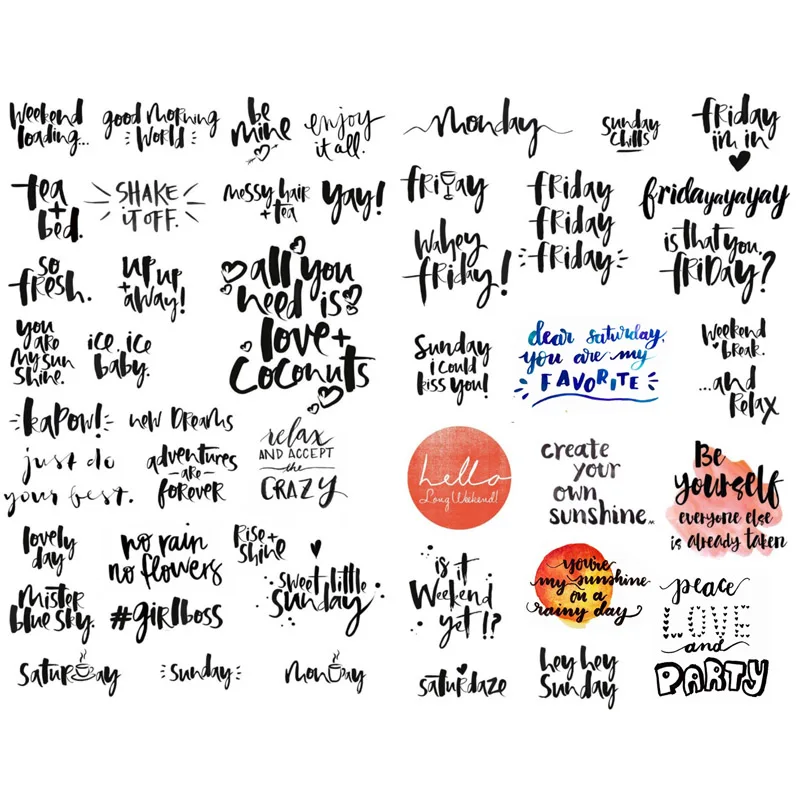 Weekend
loading...
good morning
World
be
mine
enjoy
it all.
tea
+
bed.
SHAKE
iT OFF.
messy hair
+ tea
yay!
so
fresh.
up up
+
away!
all you
need is
love +
coconuts
you
are
my sun
shine.
ice, ice
baby.
kapow!
new Dreams
just do
your best.
adventures
ARE
forever
relax
AND ACCEPT
the
CRAZY
lovely
day
no rain
no flowers
Rise +
shine
sweet little
sunday
mister
blue sky.
#girlboss
saturday
sunday
monday
monday
sunday
chills
friday
i'm in
friday
friday
friday
friday
fridayayayay
wahey
friday!
is that you,
friDay?
Sunday
i could
kiss you!
dear saturday,
you are my
FAVORITE
Weekend
break.
...and
Relax
hello
Long Weekend!
create
your
own
sunshine.
Be
yourself
everyone else
is already taken
is it
Weekend
yet!?
you're
my sunshine
on a
rainy day
peace
LOVE
and
PARTY
saturdaze
hey hey
Sunday